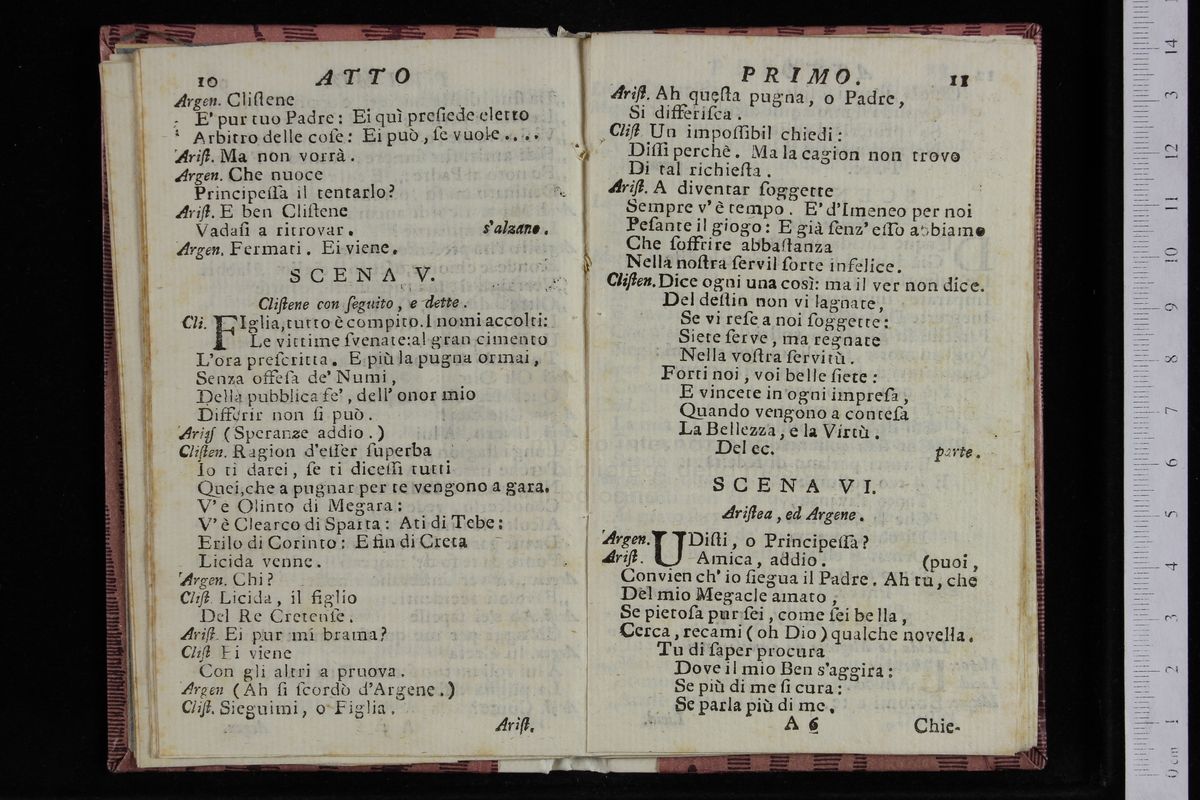 10 ATTO
Argen. Cliſtene
E' pur tuo Padre: Ei quì preſiede eletto
Arbitro delle coſe: Ei può, ſe vuole....
Ariſt. Ma non vorrà.
Argen. Che nuoce
Principeſſa il tentarlo?
Ariſt. E ben Cliſtene
Vadaſi a ritrovar. s'alzano.
Argen. Fermati. Ei viene.
SCENA V.
Cliſtene con ſeguito, e dette.
Cli. FIglia, tutto è compito. I nomi accolti:
Le vittime ſvenate: al gran cimento
L'ora preſcritta. E più la pugna ormai,
Senza offeſa de' Numi,
Della pubblica fe', dell' onor mio
Differir non ſi può.
Ariſ (Speranze addio.)
Cliſten. Ragion d'eſſer ſuperba
Io ti darei, ſe ti diceſſi tutti
Quei, che a pugnar per te vengono a gara.
V'e Olinto di Megara:
V'è Clearco di Sparta: Ati di Tebe:
Erilo di Corinto: E fin di Creta
Licida venne.
Argen. Chi?
Cliſt Licida, il figlio
Del Re Cretenſe.
Ariſt. Ei pur mi brama?
Cliſt Ei viene
Con gli altri a pruova.
Argen (Ah ſi ſcordò d'Argene.)
Cliſt. Sieguimi, o Figlia.
Ariſt.
PRIMO. 11
Ariſt. Ah queſta pugna, o Padre,
Si differiſca.
Cliſt Un impoſſibil chiedi:
Diſſi perchè. Ma la cagion non trovo
Di tal richieſta.
Ariſt. A diventar ſoggette
Sempre v'è tempo. E' d'Imeneo per noi
Peſante il giogo: E già ſenz' eſſo abbiamo
Che ſoffrire abbaſtanza
Nella noſtra ſervil ſorte infelice.
Cliſten. Dice ogni una così: ma il ver non dice.
Del deſtin non vi lagnate,
Se vi reſe a noi ſoggette:
Siete ſerve, ma regnate
Nella voſtra ſervitù.
Forti noi, voi belle ſiete:
E vincete in ogni impreſa,
Quando vengono a conteſa
La Bellezza, e la Virtù.
Del ec. parte.
SCENA VI.
Ariſtea, ed Argene.
Argen. UDiſti, o Principeſſa?
Ariſt. Amica, addio. (puoi,
Convien ch' io ſiegua il Padre. Ah tu, che
Del mio Megacle amato,
Se pietoſa pur ſei, come ſei bella,
Cerca, recami (oh Dio) qualche novella.
Tu di ſaper procura
Dove il mio Ben s'aggira:
Se più di me ſi cura:
Se parla più di me.
A 6 Chie-